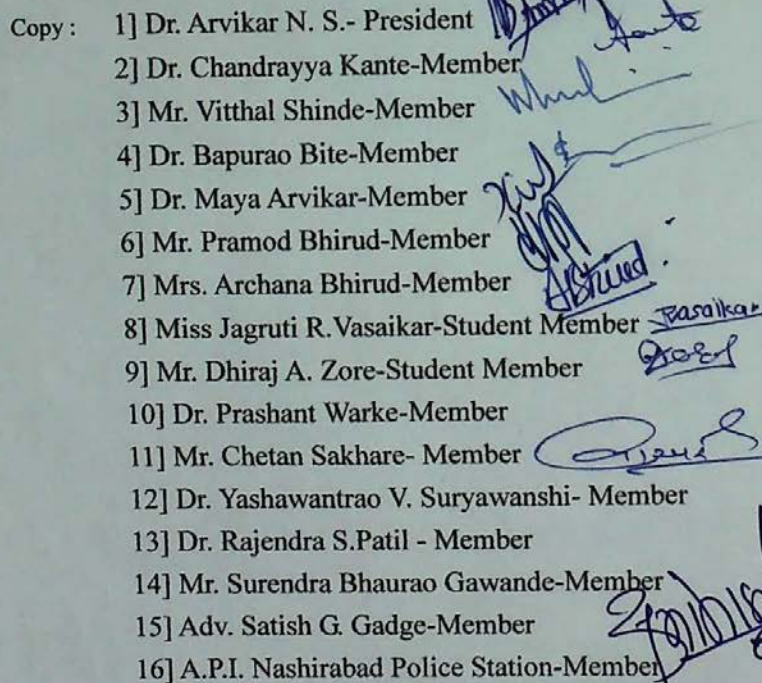 Copy : 1] Dr. Arvikar N. S.- President
2] Dr. Chandrayya Kante-Member
3] Mr. Vitthal Shinde-Member
4] Dr. Bapurao Bite-Member
5] Dr. Maya Arvikar-Member
6] Mr. Pramod Bhirud-Member
7] Mrs. Archana Bhirud-Member
8] Miss Jagruti R.Vasaikar-Student Member
9] Mr. Dhiraj A. Zore-Student Member
10] Dr. Prashant Warke-Member
11] Mr. Chetan Sakhare- Member
12] Dr. Yashawantrao V. Suryawanshi- Member
13] Dr. Rajendra S.Patil - Member
14] Mr. Surendra Bhaurao Gawande-Member
15] Adv. Satish G. Gadge-Member
16] A.P.I. Nashirabad Police Station-Member